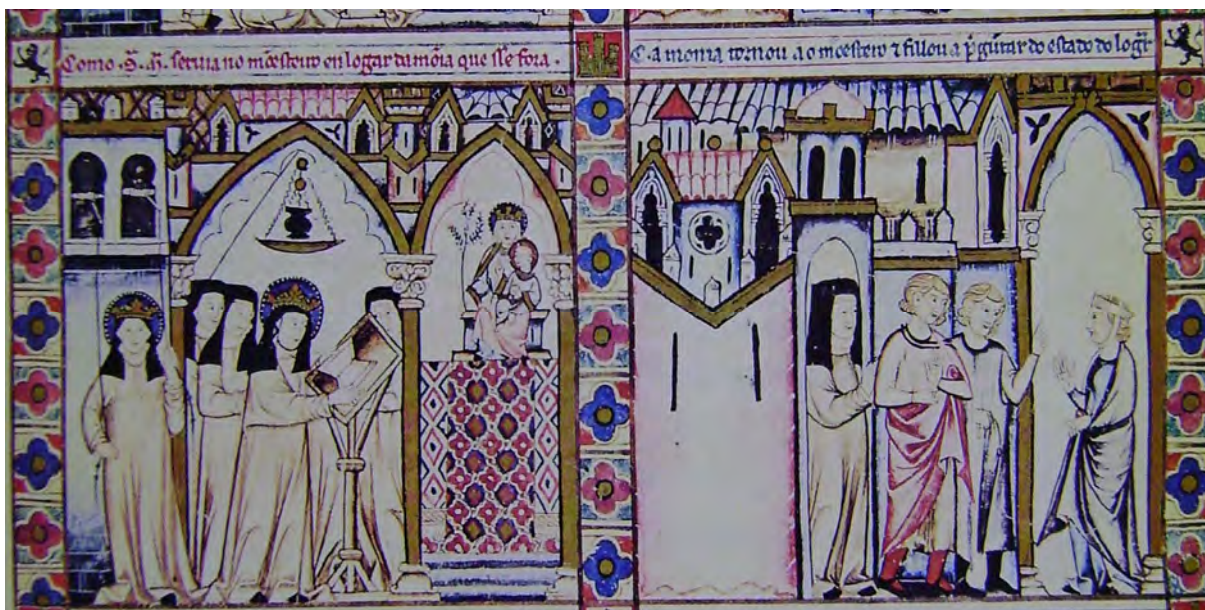 Como. S̃. M̃. seruia no mõesteiro en logar da mõia que sse fora.
C. a monia tornou ao moesteiro ⁊ fillou a p̃gũtar do estado do logr̃